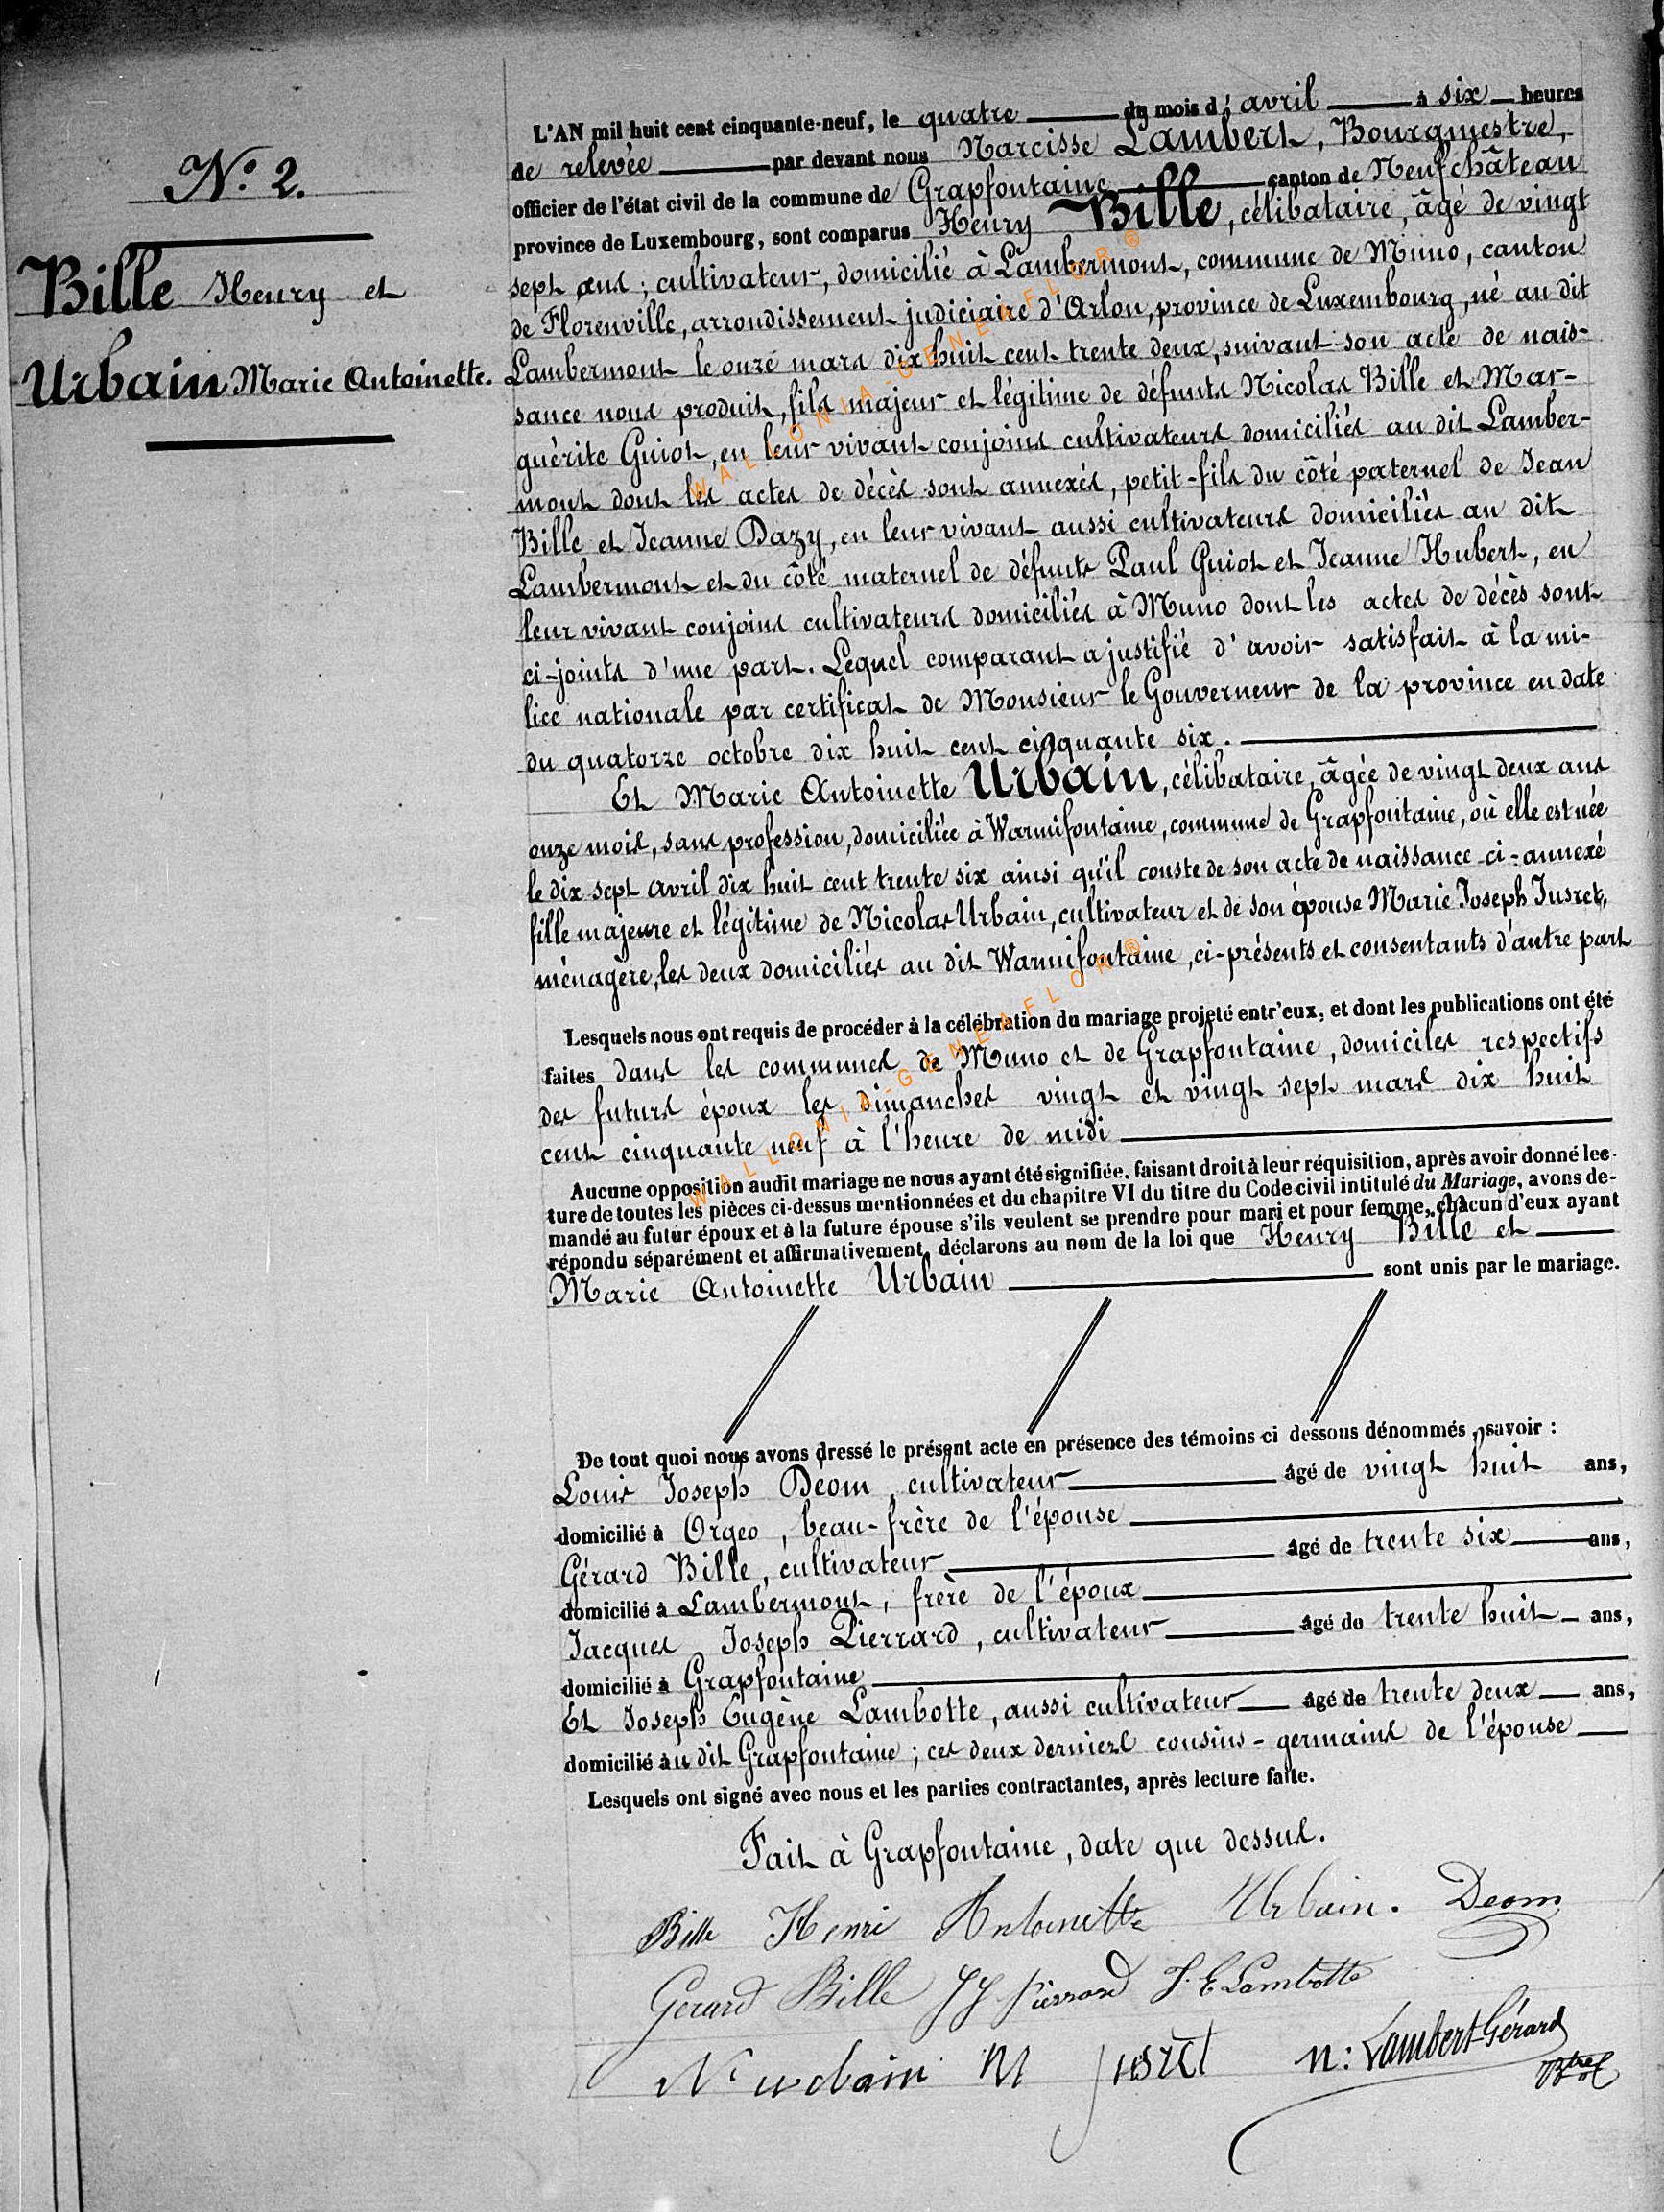 N.º 2.
Bille Henry et
Urbain Marie Antoinette.
L'AN mil huit cent cinquante-neuf, le quatre du mois d'avril à six heures
de relevée par devant nous Narcisse Lambert, Bourgmestre,
officier de l'état civil de la commune de Grapfontaine canton de Neufchâteau
province de Luxembourg, sont comparus Henry Bille, célibataire, âgé de vingt
sept ans ; cultivateur, domicilié à Lambermont, commune de Muno, canton
de Florenville, arrondissement judiciaire d'Arlon, province de Luxembourg, né au dit
Lambermont le onze mars dix huit cent trente deux, suivant son acte de nais-
sance nous produit, fils majeur et légitime de défunts Nicolas Bille et Mar-
guérite Guiot, en leur vivant conjoins cultivateurs domiciliés au dit Lamber-
mont dont les actes de décès sont annexés, petit-fils du côté paternel de Jean
Bille et Jeanne Dazy, en leur vivant aussi cultivateurs domiciliés au dit
Lambermont et du côté maternel de défunts Paul Guiot et Jeanne Hubert, en
leur vivant conjoins cultivateurs domiciliés à Muno dont les actes de décès sont
ci-joints d'une part. Lequel comparant a justifié d'avoir satisfait à la mi-
lice nationale par certificat de Monsieur le Gouverneur de la province en date
du quatorze octobre dix huit cent cinquante six.
Et Marie Antoinette Urbain, célibataire, âgée de vingt deux ans
onze mois, sans profession, domiciliée à Warmifontaine, commune de Grapfontaine, où elle est née
le dix sept avril dix huit cent trente six ainsi qu'il conste de son acte de naissance ci-annexé
fille majeure et légitime de Nicolas Urbain, cultivateur et de son épouse Marie Joseph Jusret,
ménagère, les deux domiciliés au dit Warmifontaine, ci-présents et consentants d'autre part
Lesquels nous ont requis de procéder à la célébration du mariage projeté entr'eux, et dont les publications ont été
faites dans les communes de Muno et de Grapfontaine, domiciles respectifs
des futurs époux les dimanches vingt et vingt sept mars dix huit
cent cinquante neuf à l'heure de midi
Aucune opposition audit mariage ne nous ayant été signifiée, faisant droit à leur réquisition, après avoir donné lec-
ture de toutes les pièces ci-dessus mentionnées et du chapitre VI du titre du Code civil intitulé du Mariage, avons de-
mandé au futur époux et à la future épouse s'ils veulent se prendre pour mari et pour femme, chacun d'eux ayant
répondu séparément et affirmativement, déclarons au nom de la loi que Henry Bille et
Marie Antoinette Urbain sont unis par le mariage.
De tout quoi nous avons dressé le présent acte en présence des témoins ci dessous dénommés, savoir :
Louis Joseph Déom, cultivateur âgé de vingt huit ans,
domicilié à Orgeo, beau-frère de l'épouse
Gérard Bille, cultivateur âgé de trente six ans,
domicilié à Lambermont, frère de l'époux
Jacques Joseph Pierrard, cultivateur âgé de trente huit ans,
domicilié à Grapfontaine
Et Joseph Eugène Lambotte, aussi cultivateur âgé de trente deux ans,
domicilié au dit Grapfontaine ; ces deux derniers cousins-germains de l'épouse
Lesquels ont signé avec nous et les parties contractantes, après lecture faite.
Fait à Grapfontaine, date que dessus.
Bille Henri Antoinette Urbain. Deom
Gerard Bille JJ Pierrard J. E Lambotte
N. urbain M jusret N: Lambert-Gérard
Btre
WALLONIA-GENEAFLOR®
WALLONIA-GENEAFLOR®